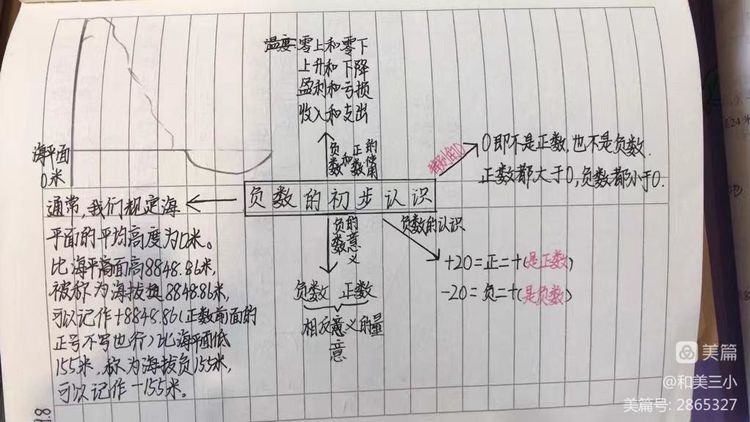 温度:零上和零下
上升和下降
盈利和亏损
收入和支出
负数和正数的使用
特别的0
0即不是正数,也不是负数.
正数都大于0,负数都小于0.
海平面
0米
负数的初步认识
通常,我们规定海
平面的平均高度为0米。
比海平面高8848.86米,
被称为海拔8848.86米,
可以记作+8848.86(正数前面的
正号不写也行)比海平面低
155米,称为海拔负155米,
可以记作-155米。
负数的意义
负数 正数
相反意义的量
意
负数的认识
+20=正二十(是正数)
-20=负二十(是负数)
美篇
@和美三小
美篇号: 2865327